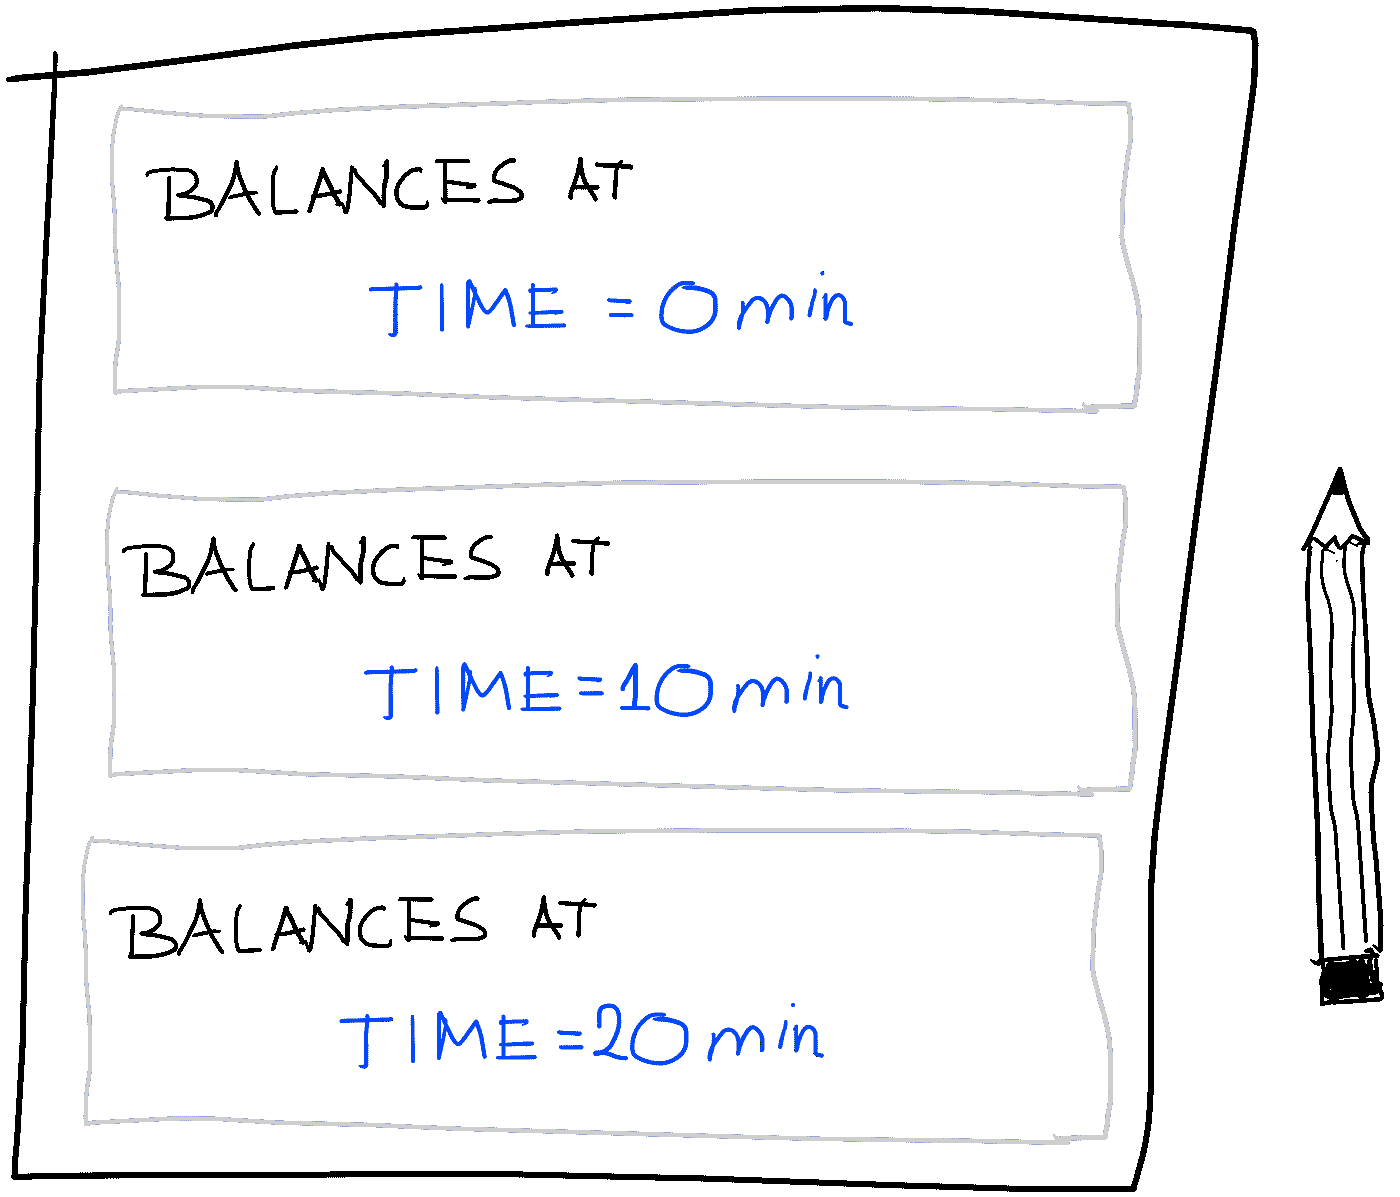 BALANCES AT
TIME = 0 min
BALANCES AT
TIME = 10 min
BALANCES AT
TIME = 20 min